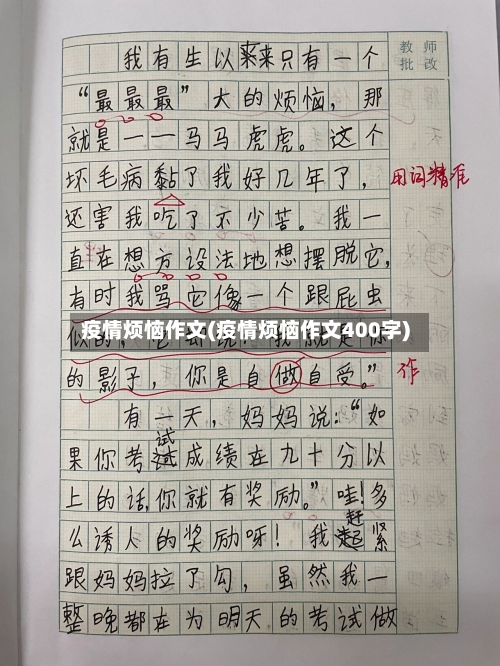 我有生以来来只有一个
教师
批改
“最最最”大的烦恼，那
就是——马马虎虎。这个
坏毛病黏了我好几年了，
用词精准
还害我吃了不少苦。我一
直在想方设法地想摆脱它，
有时我骂它像一个跟屁虫
疫情烦恼作文(疫情烦恼作文400字)
似的，它会说“我就是你
的影子，你是自做自受。”
作
有一天，妈妈说：“如
果你考试成绩在九十分以
上的话，你就有奖励。”哇！多
么诱人的奖励呀！我赶紧
跟妈妈拉了勾，虽然我一
整晚都在为明天的考试做